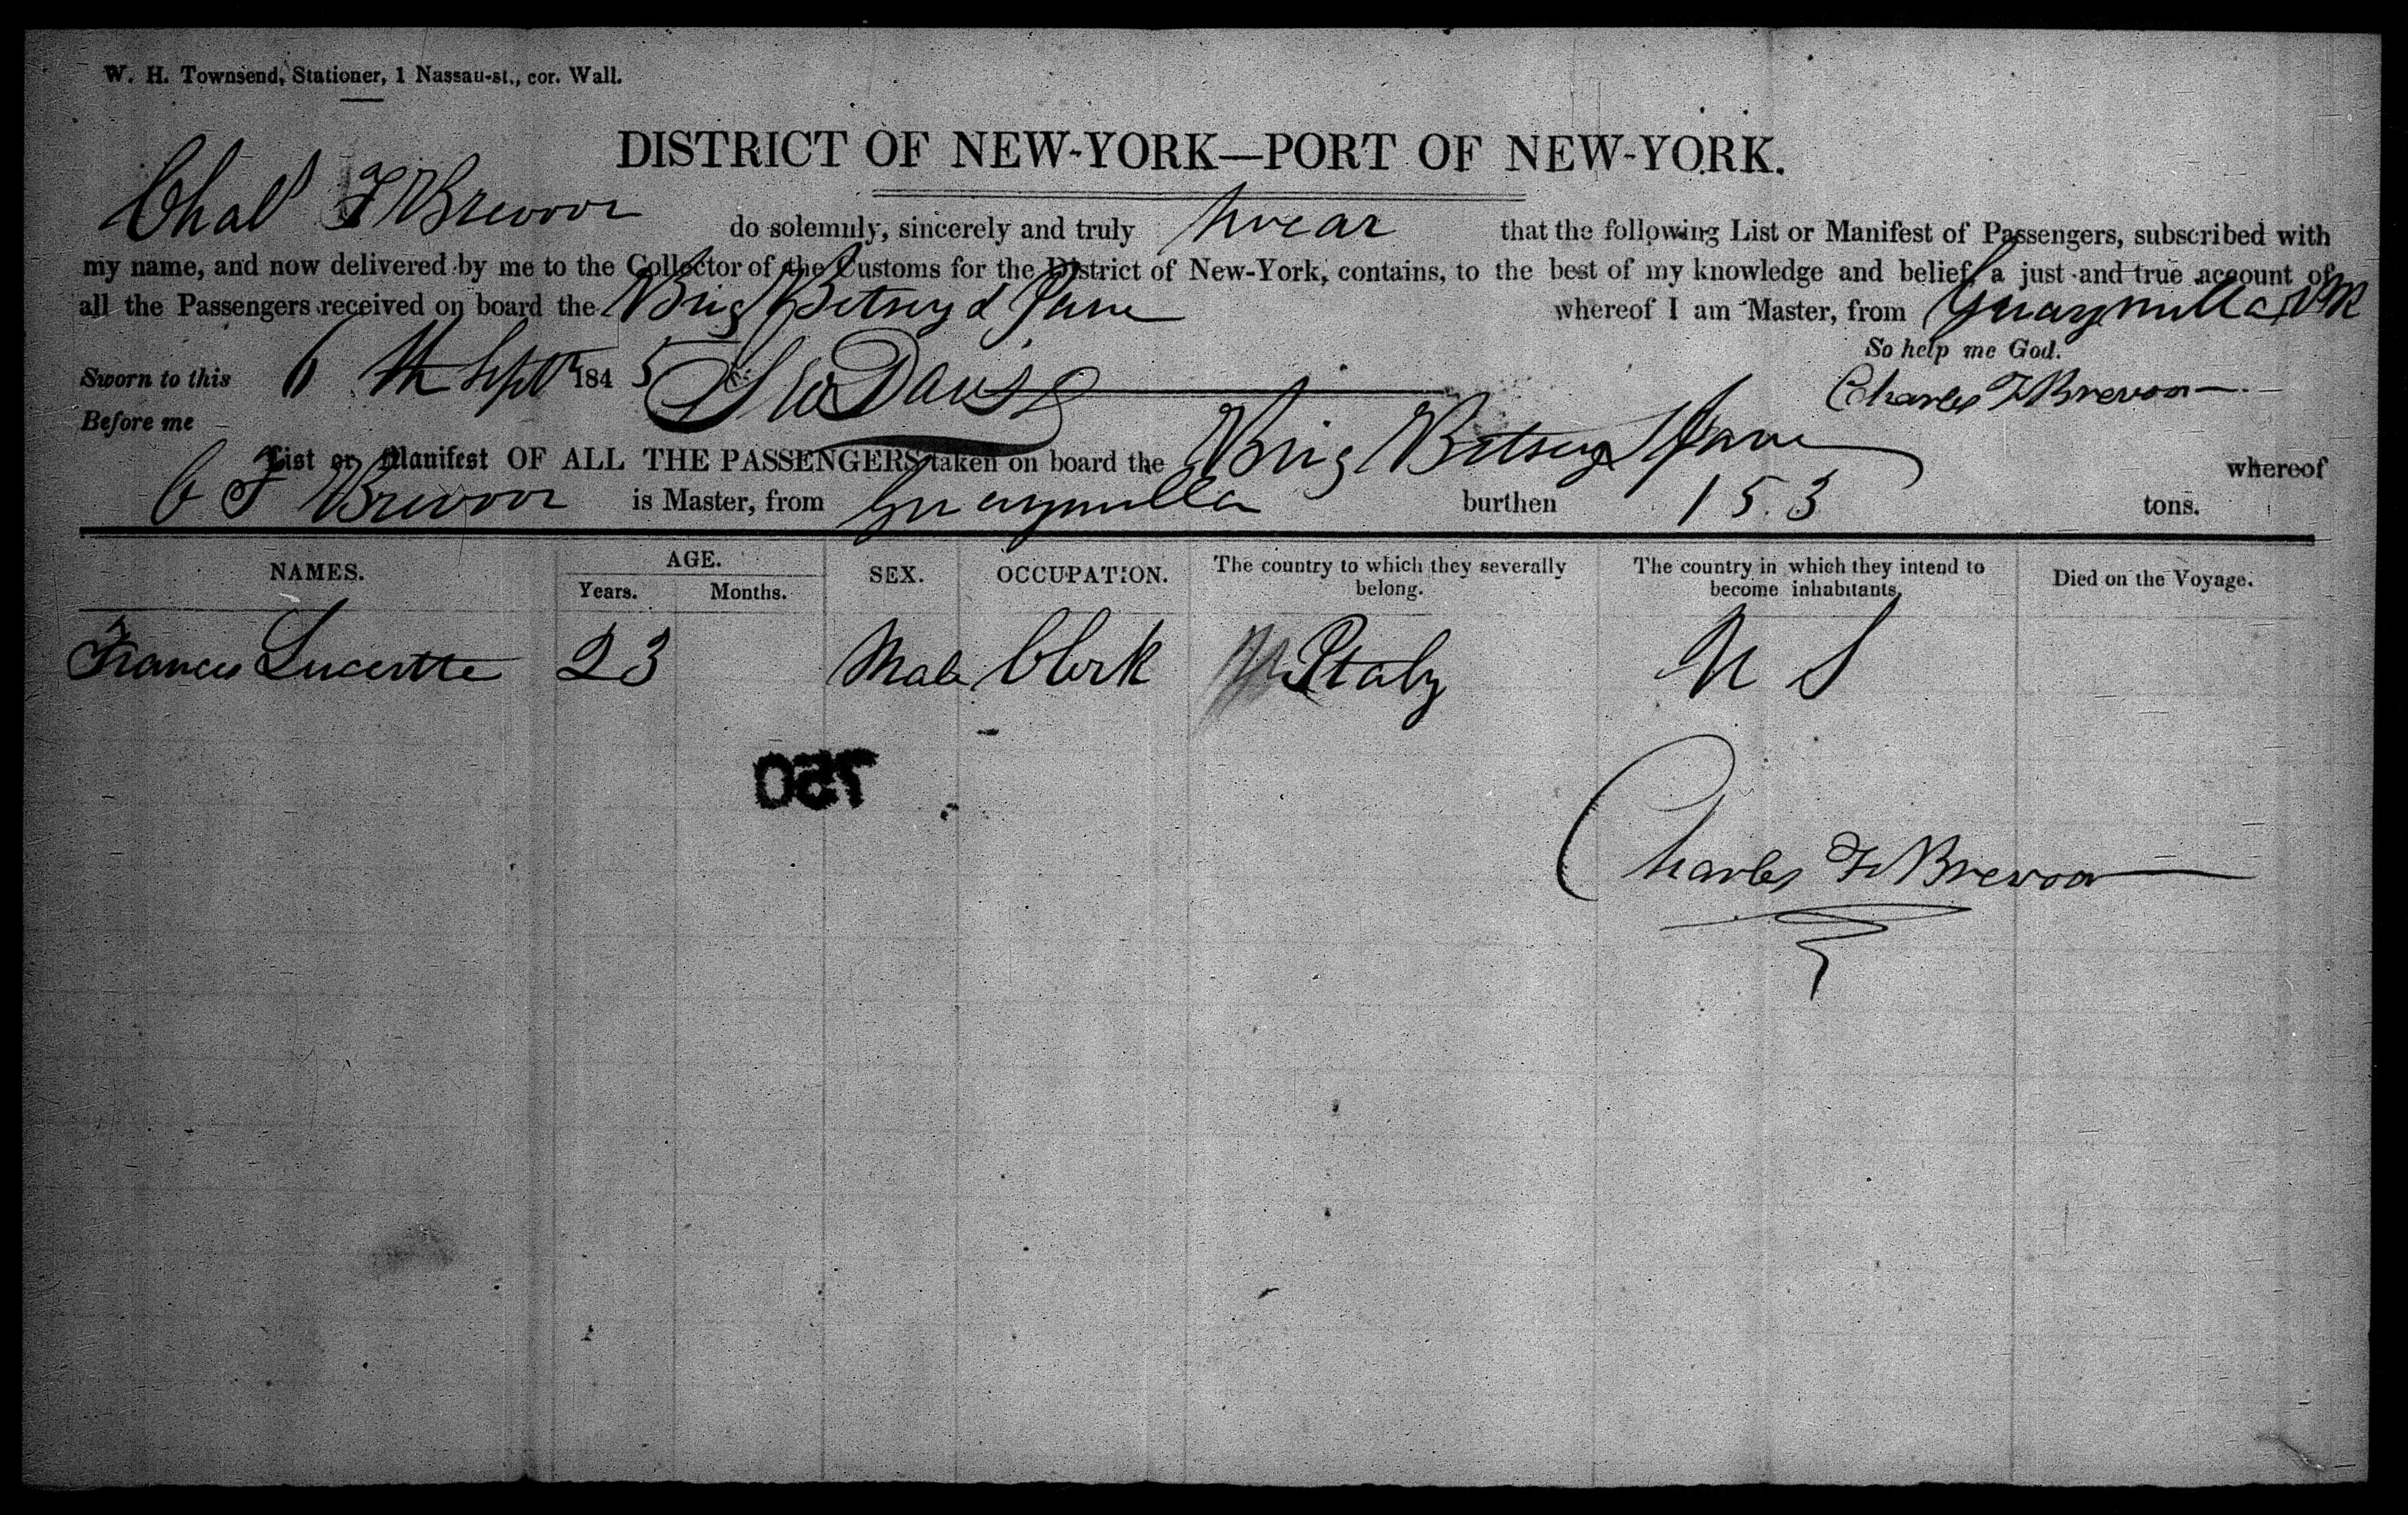 W. H. Townsend, Stationer, 1 Nassau-st., cor. Wall.
DISTRICT OF NEW-YORK—PORT OF NEW-YORK.
Chas F Brevoor do solemnly, sincerely and truly swear that the following List or Manifest of Passengers, subscribed with
my name, and now delivered by me to the Collector of the Customs for the District of New-York, contains, to the best of my knowledge and belief, a just and true account of
all the Passengers received on board the Brig Betsey & Jane whereof I am Master, from Guaymilla
So help me God.
Sworn to this 6th Sept 1845 Geo Davis Charles F Brevoor
Before me
List or Manifest OF ALL THE PASSENGERS taken on board the Brig Betsey & Jane whereof
C F Brevoor is Master, from Guaymilla burthen 153 tons.
NAMES. AGE. Years. Months. SEX. OCCUPATION. The country to which they severally belong. The country in which they intend to become inhabitants. Died on the Voyage.
Frances Lucertte 23 Male Clerk Italy U S
750
Charles F Brevoor